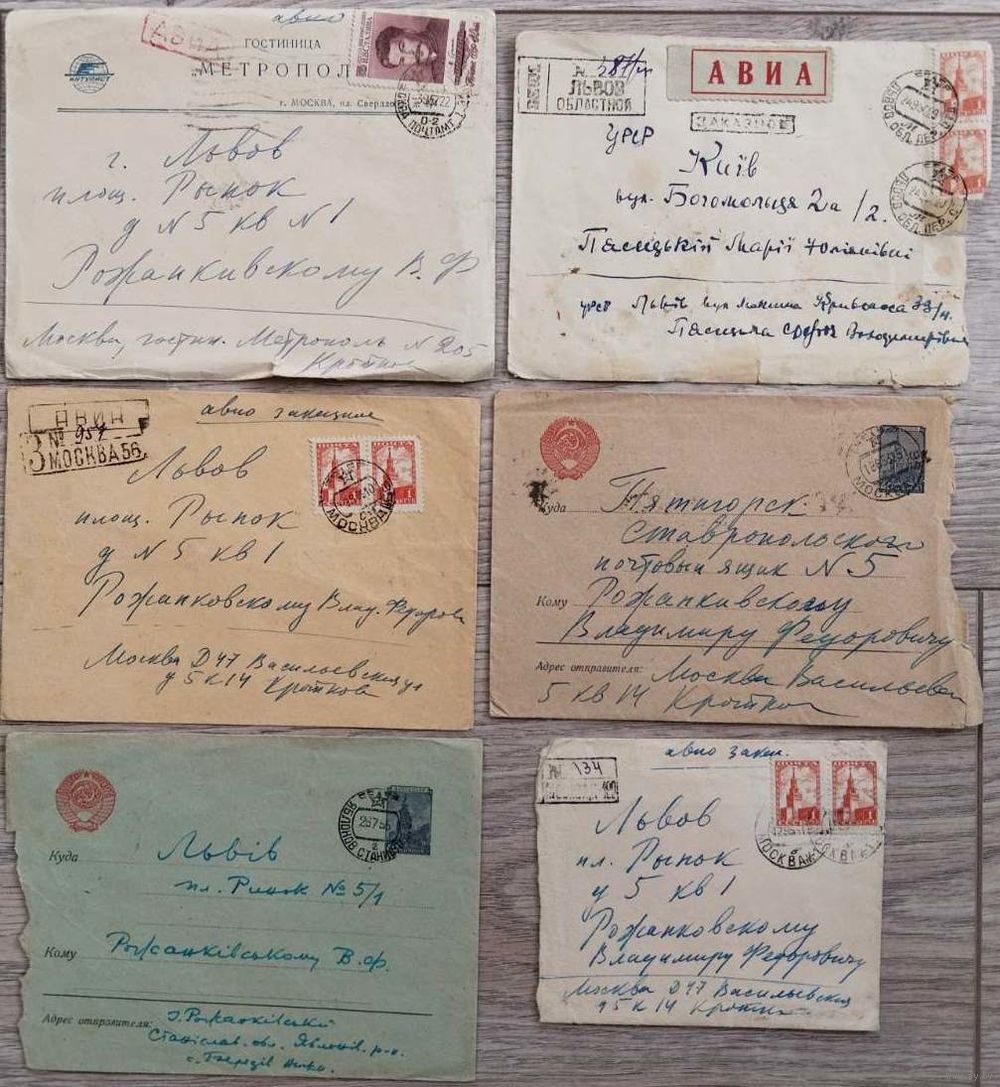 авио
АВИА
ИНТУРИСТ
ГОСТИНИЦА
МЕТРОПОЛ
г. МОСКВА, пл. Свердло
г. Львов
площ. Рынок
д N 5 кв N 1
Рожанкивскому В. Ф
Москва, гостин. Метрополь N 205
Кроткої
№ 2811
ЛЬВОВ
ОБЛАСТНОЙ
АВИА
ЗАКАЗНОЕ
УРСР
Київ
вул. Богомольця 2а/2.
Пасицькій Марії Юліанівні
УРСР Львів вул 33/4.
Пасицька Володимирівна
АВИА
З № 957
МОСКВА 56
авио заказное
Львов
площ. Рынок
д N 5 кв 1
Рожанковскому Влад. Федоров
МОСКВА
Москва Д 47 Васильевская ул
д 5 к 14 Кроткова
Куда Пятигорск
Ставропольского
почтовый ящик N 5
Кому Рожанкивскому
Владимиру Федоровичу
Адрес отправителя: Москва Васильевск
5 кв 14
МОСКВА
Куда Львів
пл. Ринок № 5/1
Кому Рожанківському В. Ф.
Адрес отправителя: Рожанківський
Станіслав. обл. Яблонів. р-н.
25 7 56
ЯБЛОНОВ СТАНИСЛ
№ 134
авио заказ.
Львов
пл. Рынок
д 5 кв 1
Рожанковскому
Владимиру Федоровичу
МОСКВА
Москва Д 47 Васильевская
д 5 к 14